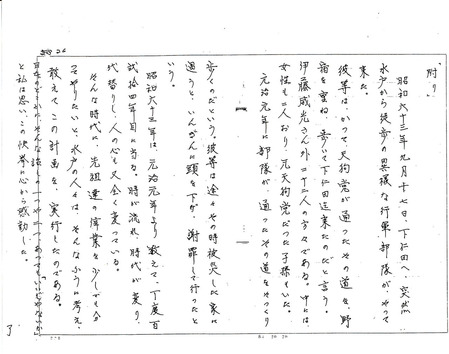 「附り」
昭和六十三年九月十七日、下仁田へ、突然
水戸から徒歩の異様な行軍部隊が、やって
来た。
彼等は、かつて天狗党が通ったその道を、野
宿を重ね、歩いて下仁田迄来たのだと言う。
伊藤成光さん外二十二人の方々である。中には
女性も二人おり、元天狗党だった子孫もいた。
元治元年に部隊が、通ったその道をそっくり
歩くのだという。彼等は途々その時被災した家に
過うと、いんぎんに頭を下げ、謝罪して行ったと
いう。
昭和六十三年は、元治元年より数えて、丁度百
弐拾四年目に当る。時が流れ、時代が変り、
代替りし、人の心も又全く変っている。
そんな時代に、先祖達の偉業を少しでも
てやりたいと、水戸の人々は、そんなふうに考え、
敢えてこの計画を、実行したのである。
そんな話し一つや二つあってもいいじゃないか
と私は思い、この快挙に心から感動した。
了